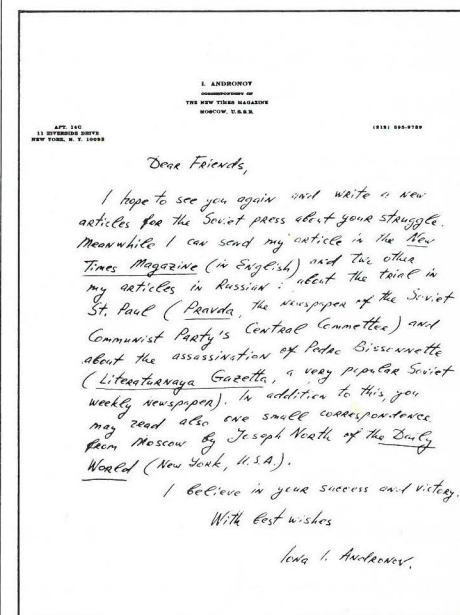 I. ANDRONOV
CORRESPONDENT OF
THE NEW TIMES MAGAZINE
MOSCOW, U.S.S.R.
APT. 14C
11 RIVERSIDE DRIVE
NEW YORK, N. Y. 10023
(212) 595-9789
Dear Friends,
I hope to see you again and write a new
articles for the Soviet press about your struggle.
Meanwhile I can send my article in the New
Times Magazine (in English) and two other
my articles in Russian: about the trial in
St. Paul (Pravda, the newspaper of the Soviet
Communist Party's Central Committee) and
about the assassination of Pedro Bissonnette
(Literaturnaya Gazetta, a very popular Soviet
weekly newspaper). In addition to this, you
may read also one small correspondence
from Moscow by Joseph North of the Daily
World (New York, U.S.A.).
I believe in your success and victory.
With best wishes
Iona I. Andronov.